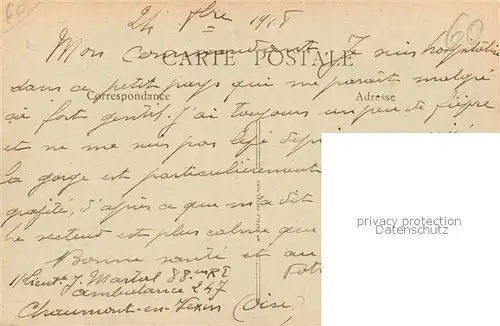 24 7bre 1918
60
60
Mon Commandant, Je suis hospitalisé
CARTE POSTALE
dans ce petit pays qui me paraît malgré
Correspondance
Adresse
ça fort gentil. J'ai toujours un peu de fièvre
et ne me suis pas levé
la gorge est particulièrement
d'après ce que m'a dit
le secteur est plus calme que
Bonne santé et au
privacy protection
www.delcampe.net
J. Martal 88 me RI
ambulance 247
Chaumont-en-Vexin (Oise)